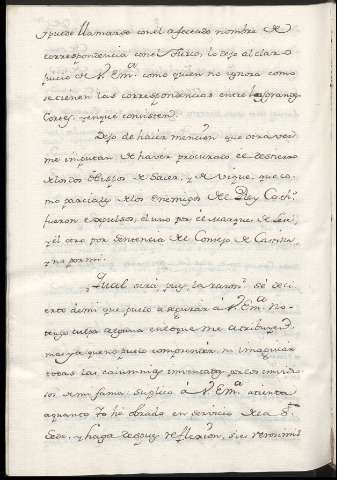 puede llamarse con el afectado nombre de
correspondencia con el Turco, lo dejo al claro
juicio de V. Em.ª como quien no ignora como
se tienen las correspondencias entre las grandes
Cortes, y en que consisten.
Dejo de hacer mencion que otra vez
me imputan de haver procurado el destierro
de los dos Obispos de Sacer, y de Vique, que co-
mo parciales de los enemigos del Rey Cath.º
fueron expulsos, el uno por el Marques de
y el otro por sentencia del Consejo de
y no por mi.
Qual sea pues la razon, Sé de
cierto de mi que puedo asegurar á V. Em.ª no
tengo culpa alguna en lo que me atribuyen,
mas ya que no puedo comprender, ni imaginar
todas las calumnias inventadas por los invidio-
sos de mi fama: suplico á V. Em.ª atienda
a quanto Yo hé obrado en servicio de la S.ta
Sede, y haga despues reflexion, si es verosimil